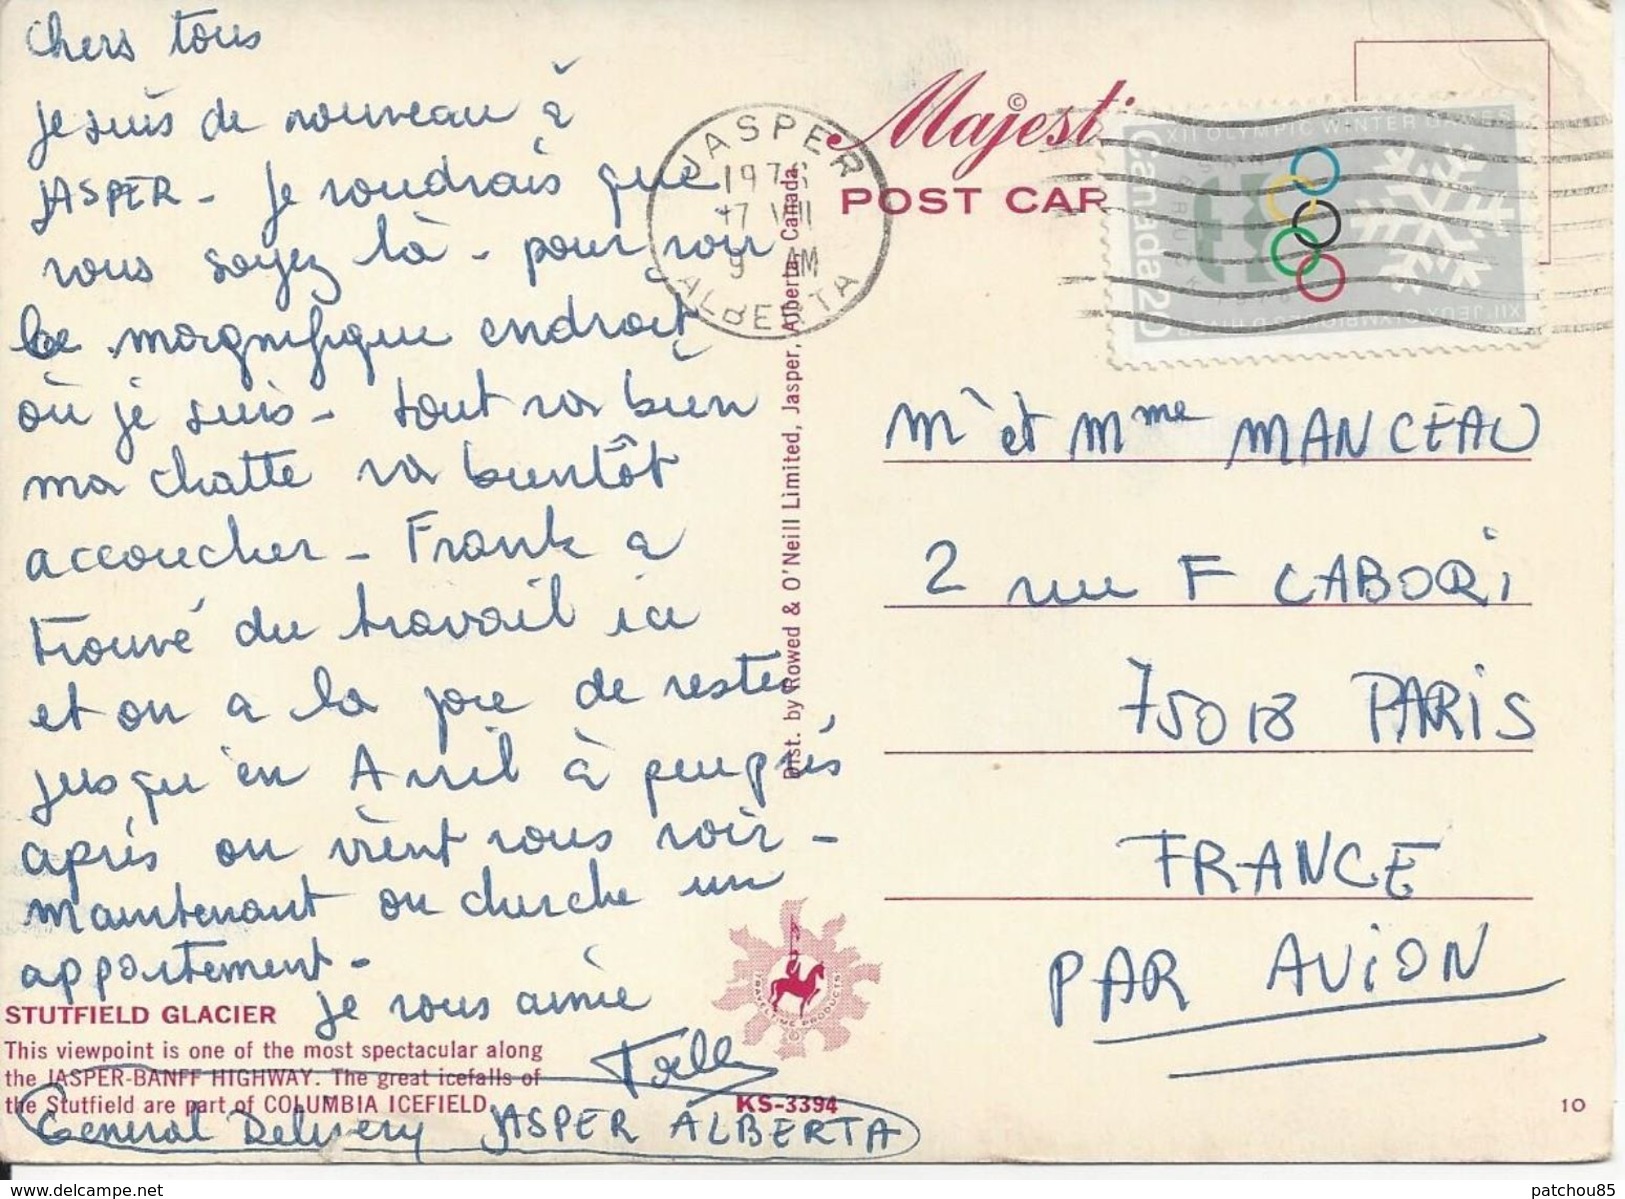 Chers tous
je suis de nouveau à
JASPER - je voudrais que
vous soyez là - pour voir
le magnifique endroit
où je suis - tout va bien
ma chatte va bientôt
accoucher - Frank a
trouvé du travail ici
et on a la joie de rester
jusqu'en Avril à peu près
après on vient vous voir -
maintenant on cherche un
appartement -
je vous aime
General Delivery JASPER ALBERTA
STUTFIELD GLACIER
This viewpoint is one of the most spectacular along
the JASPER-BANFF HIGHWAY. The great icefalls of
the Stutfield are part of COLUMBIA ICEFIELD.
KS-3394
Dist. by Rowed & O'Neill Limited, Jasper, Alberta, Canada
TRAVELTIME PRODUCTS
JASPER
1976
9 AM
ALBERTA
©
Majesti
POST CAR
XII OLYMPIC WINTER GAMES
Canada 20
XIIes JEUX OLYMPIQUES D'HIVER
Mr et Mme MANCEAU
2 rue F CABORi
75018 PARIS
FRANCE
PAR AVION
10
patchou85